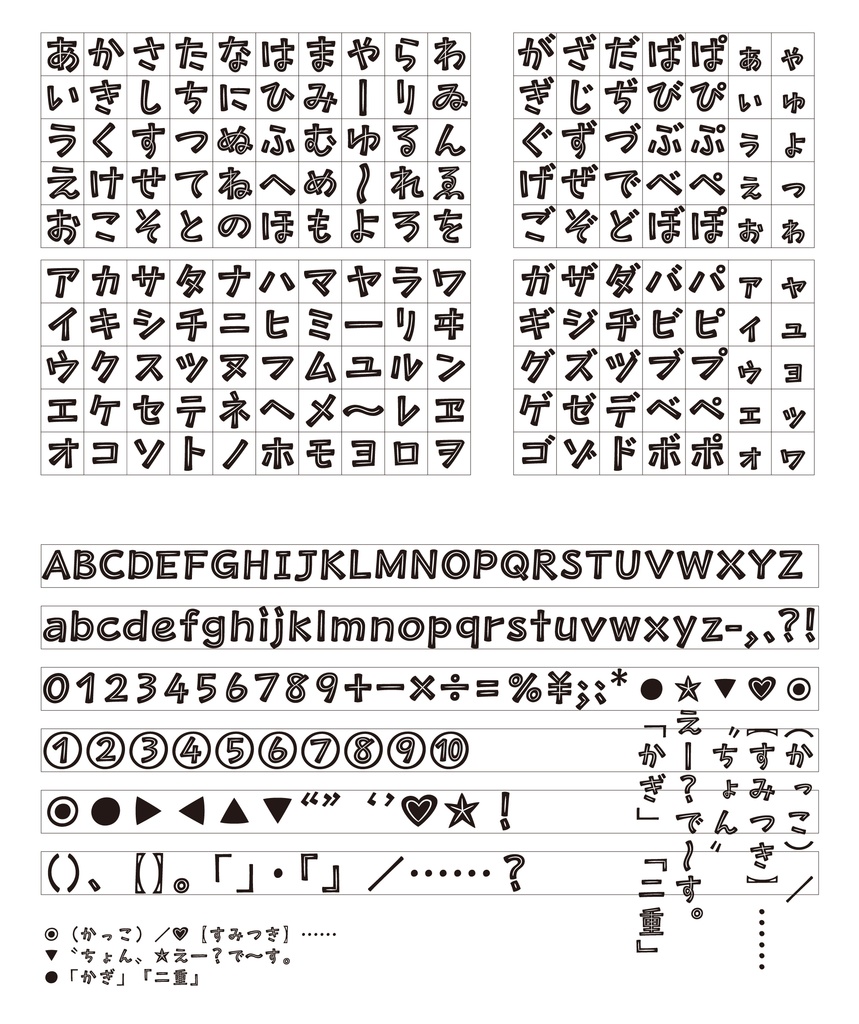 あかさたなはまやらわ
いきしちにひみーりゐ
うくすつぬふむゆるん
えけせてねへめ〜れゑ
おこそとのほもよろを
がざだばぱぁゃ
ぎじぢびぴぃゅ
ぐずづぶぷぅょ
げぜでべぺぇっ
ごぞどぼぽぉゎ
アカサタナハマヤラワ
イキシチニヒミーリヰ
ウクスツヌフムユルン
エケセテネヘメ〜レヱ
オコソトノホモヨロヲ
ガザダバパァャ
ギジヂビピィュ
グズヅブプゥョ
ゲゼデベペェッ
ゴゾドボポォヮ
ABCDEFGHIJKLMNOPQRSTUVWXYZ
abcdefghijklmnopqrstuvwxyz-,、.?!
0123456789+−×÷=%¥;:*
①②③④⑤⑥⑦⑧⑨⑩
◉●▶◀▲▼“”‘’♥★!
()、【】。「」・『』／……?
◉（かっこ）／♥【すみつき】……
▼〝ちょん〟★えー？で〜す。
●「かぎ」『二重』
◉（かっこ）／
♥【すみつき】……
▼〝ちょん〟
★えー？で〜す。
●「かぎ」『二重』